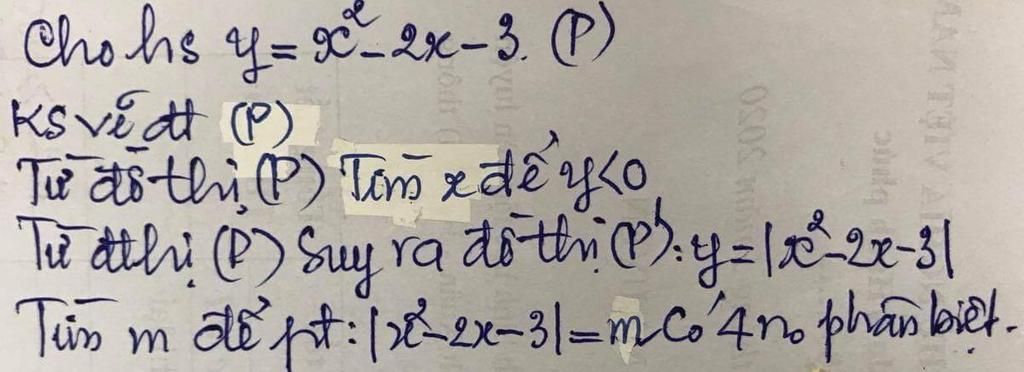 Cho hs y = x² - 2x - 3. (P)
KS vẽ đt (P)
Từ đồ thị (P) Tìm x để y<0
Từ đthị (P) Suy ra đồ thị (P'): y = |x² - 2x - 3|
Tìm m để pt: |x² - 2x - 3| = m Có 4 no phân biệt.